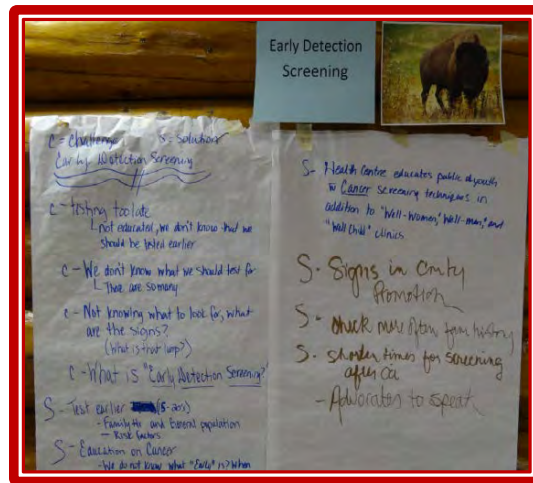 Early Detection
Screening
C = Challenge S = Solution
Early Detection Screening
C - testing too late
not educated, we don't know that we
should be tested earlier
C - We don't know what we should test for
There are so many
C - Not knowing what to look for, what
are the signs?
(What is that lump?)
C - What is "Early Detection Screening?"
S - Test earlier
- Family Hx and General population
- Risk Factors
S - Education on Cancer
- We do not know what "Early" is? When
S - Health Centre educates public & youth
w Cancer screening techniques in
addition to "Well-Women," Well-man," and
"Well Child" clinics
S - Signs in Cmty
Promotion
S - check more often fam history
S. shorter times for screening
after ca
- Advocates to speak